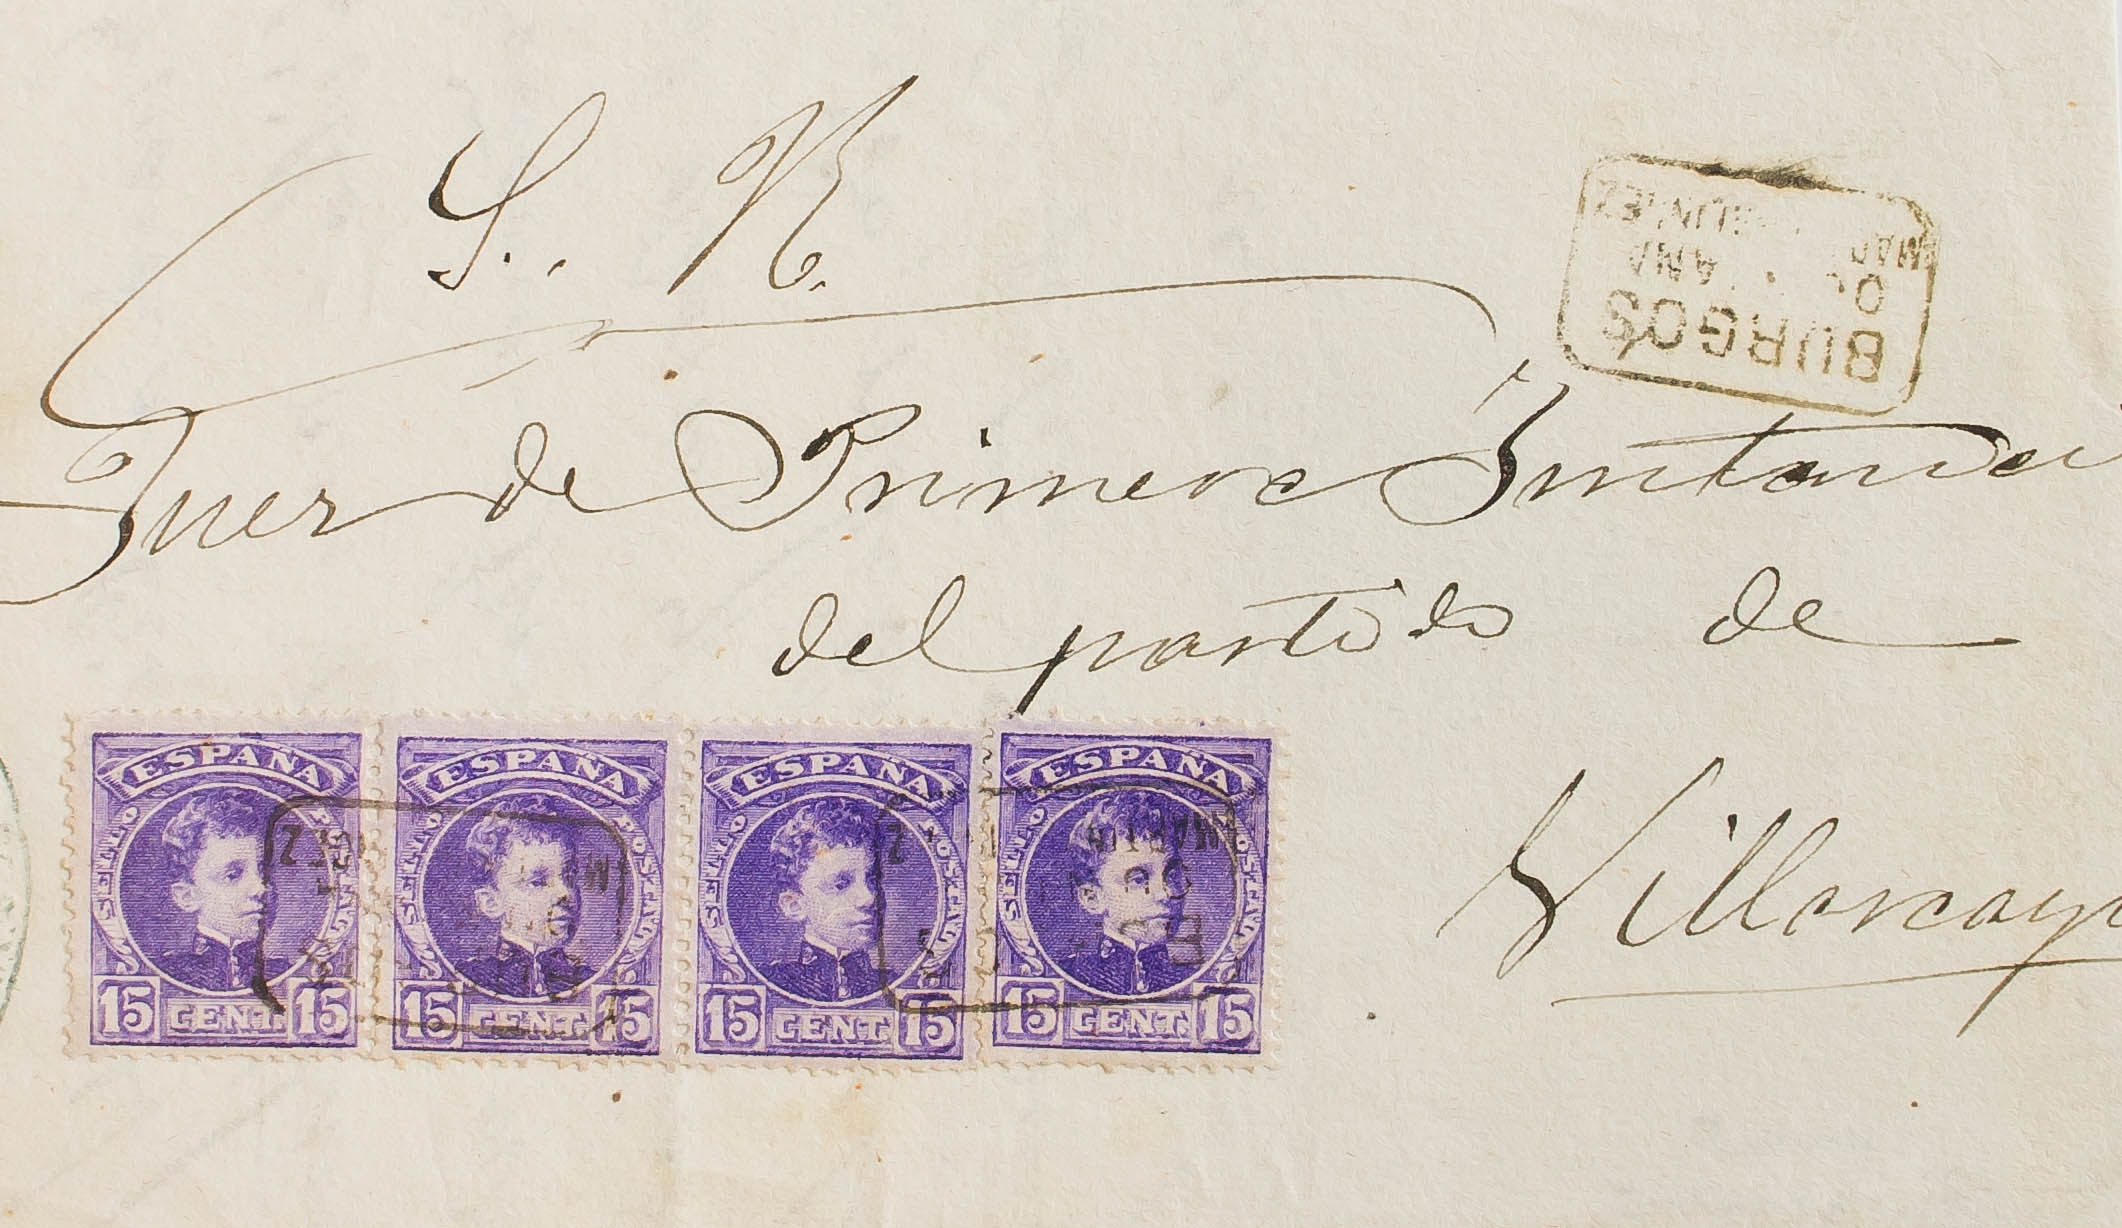 S. N.
Juez de Primera Instancia
del partido de
Villarcayo
BURGOS
ESPAÑA ESPAÑA ESPAÑA ESPAÑA
SELLO POSTAL SELLO POSTAL SELLO POSTAL SELLO POSTAL
15 CENT. 15 15 CENT. 15 15 CENT. 15 15 CENT. 15